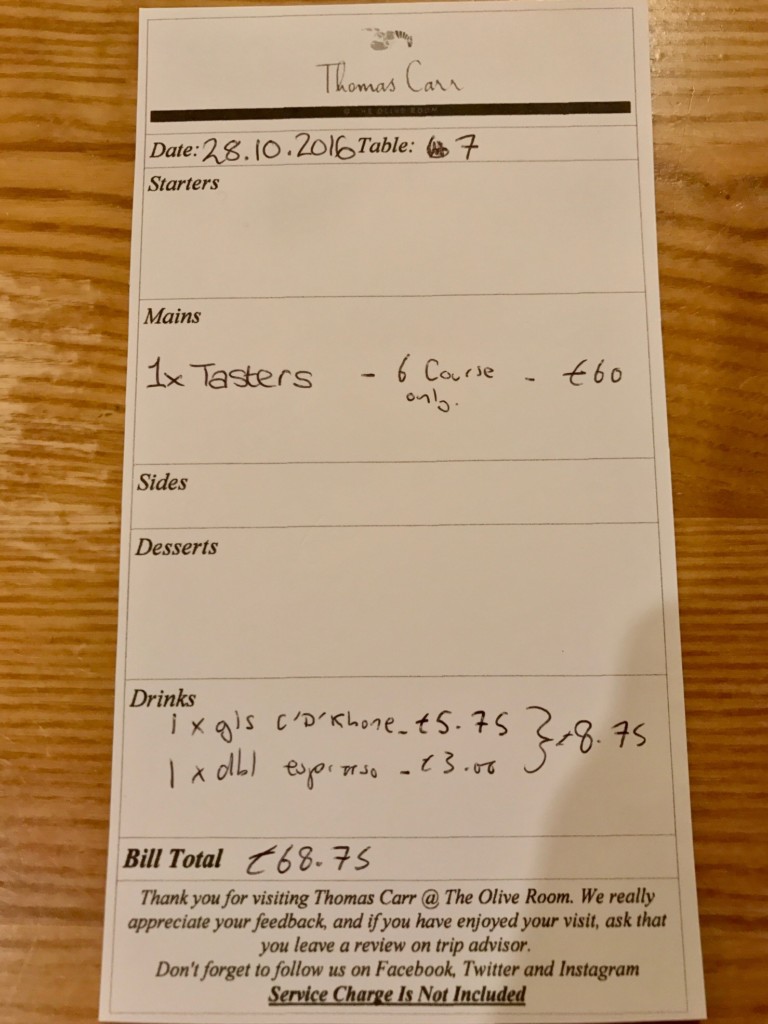 Thomas Carr
@ THE OLIVE ROOM
Date: 28.10.2016 Table: 7
Starters
Mains
1x Tasters - 6 Course - £60
only.
Sides
Desserts
Drinks
1 x gls C'D'Rhone - £5.75 } £8.75
1 x dbl espresso - £3.00
Bill Total £68.75
Thank you for visiting Thomas Carr @ The Olive Room. We really
appreciate your feedback, and if you have enjoyed your visit, ask that
you leave a review on trip advisor.
Don't forget to follow us on Facebook, Twitter and Instagram
Service Charge Is Not Included